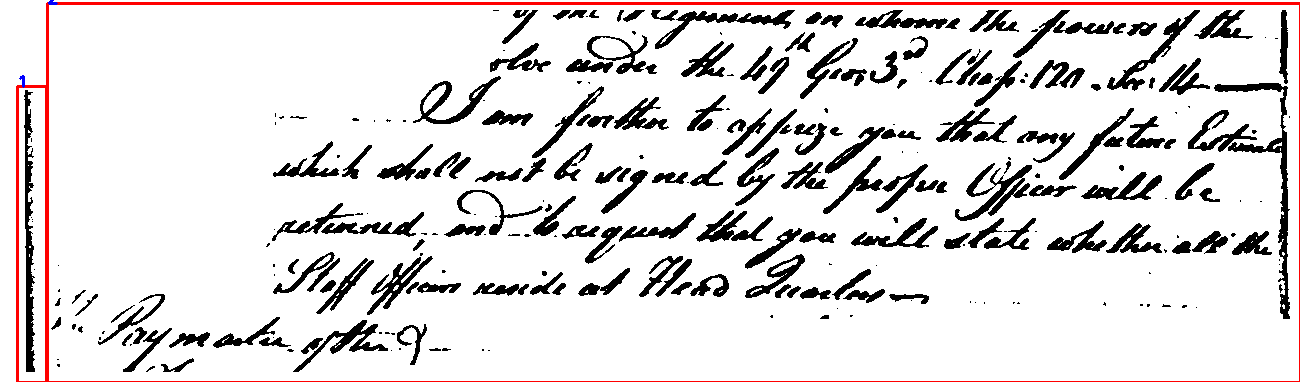 of the Regiment, on whome the powers of the
olve under the 49th Geo: 3rd, Chap: 120. Sec: 14
I am further to apprize you that any future Estimate
which shall not be signed by the proper Officer will be
returned, and to request that you will state whether all the
Staff Officers reside at Head Quarters
The Paymaster of the